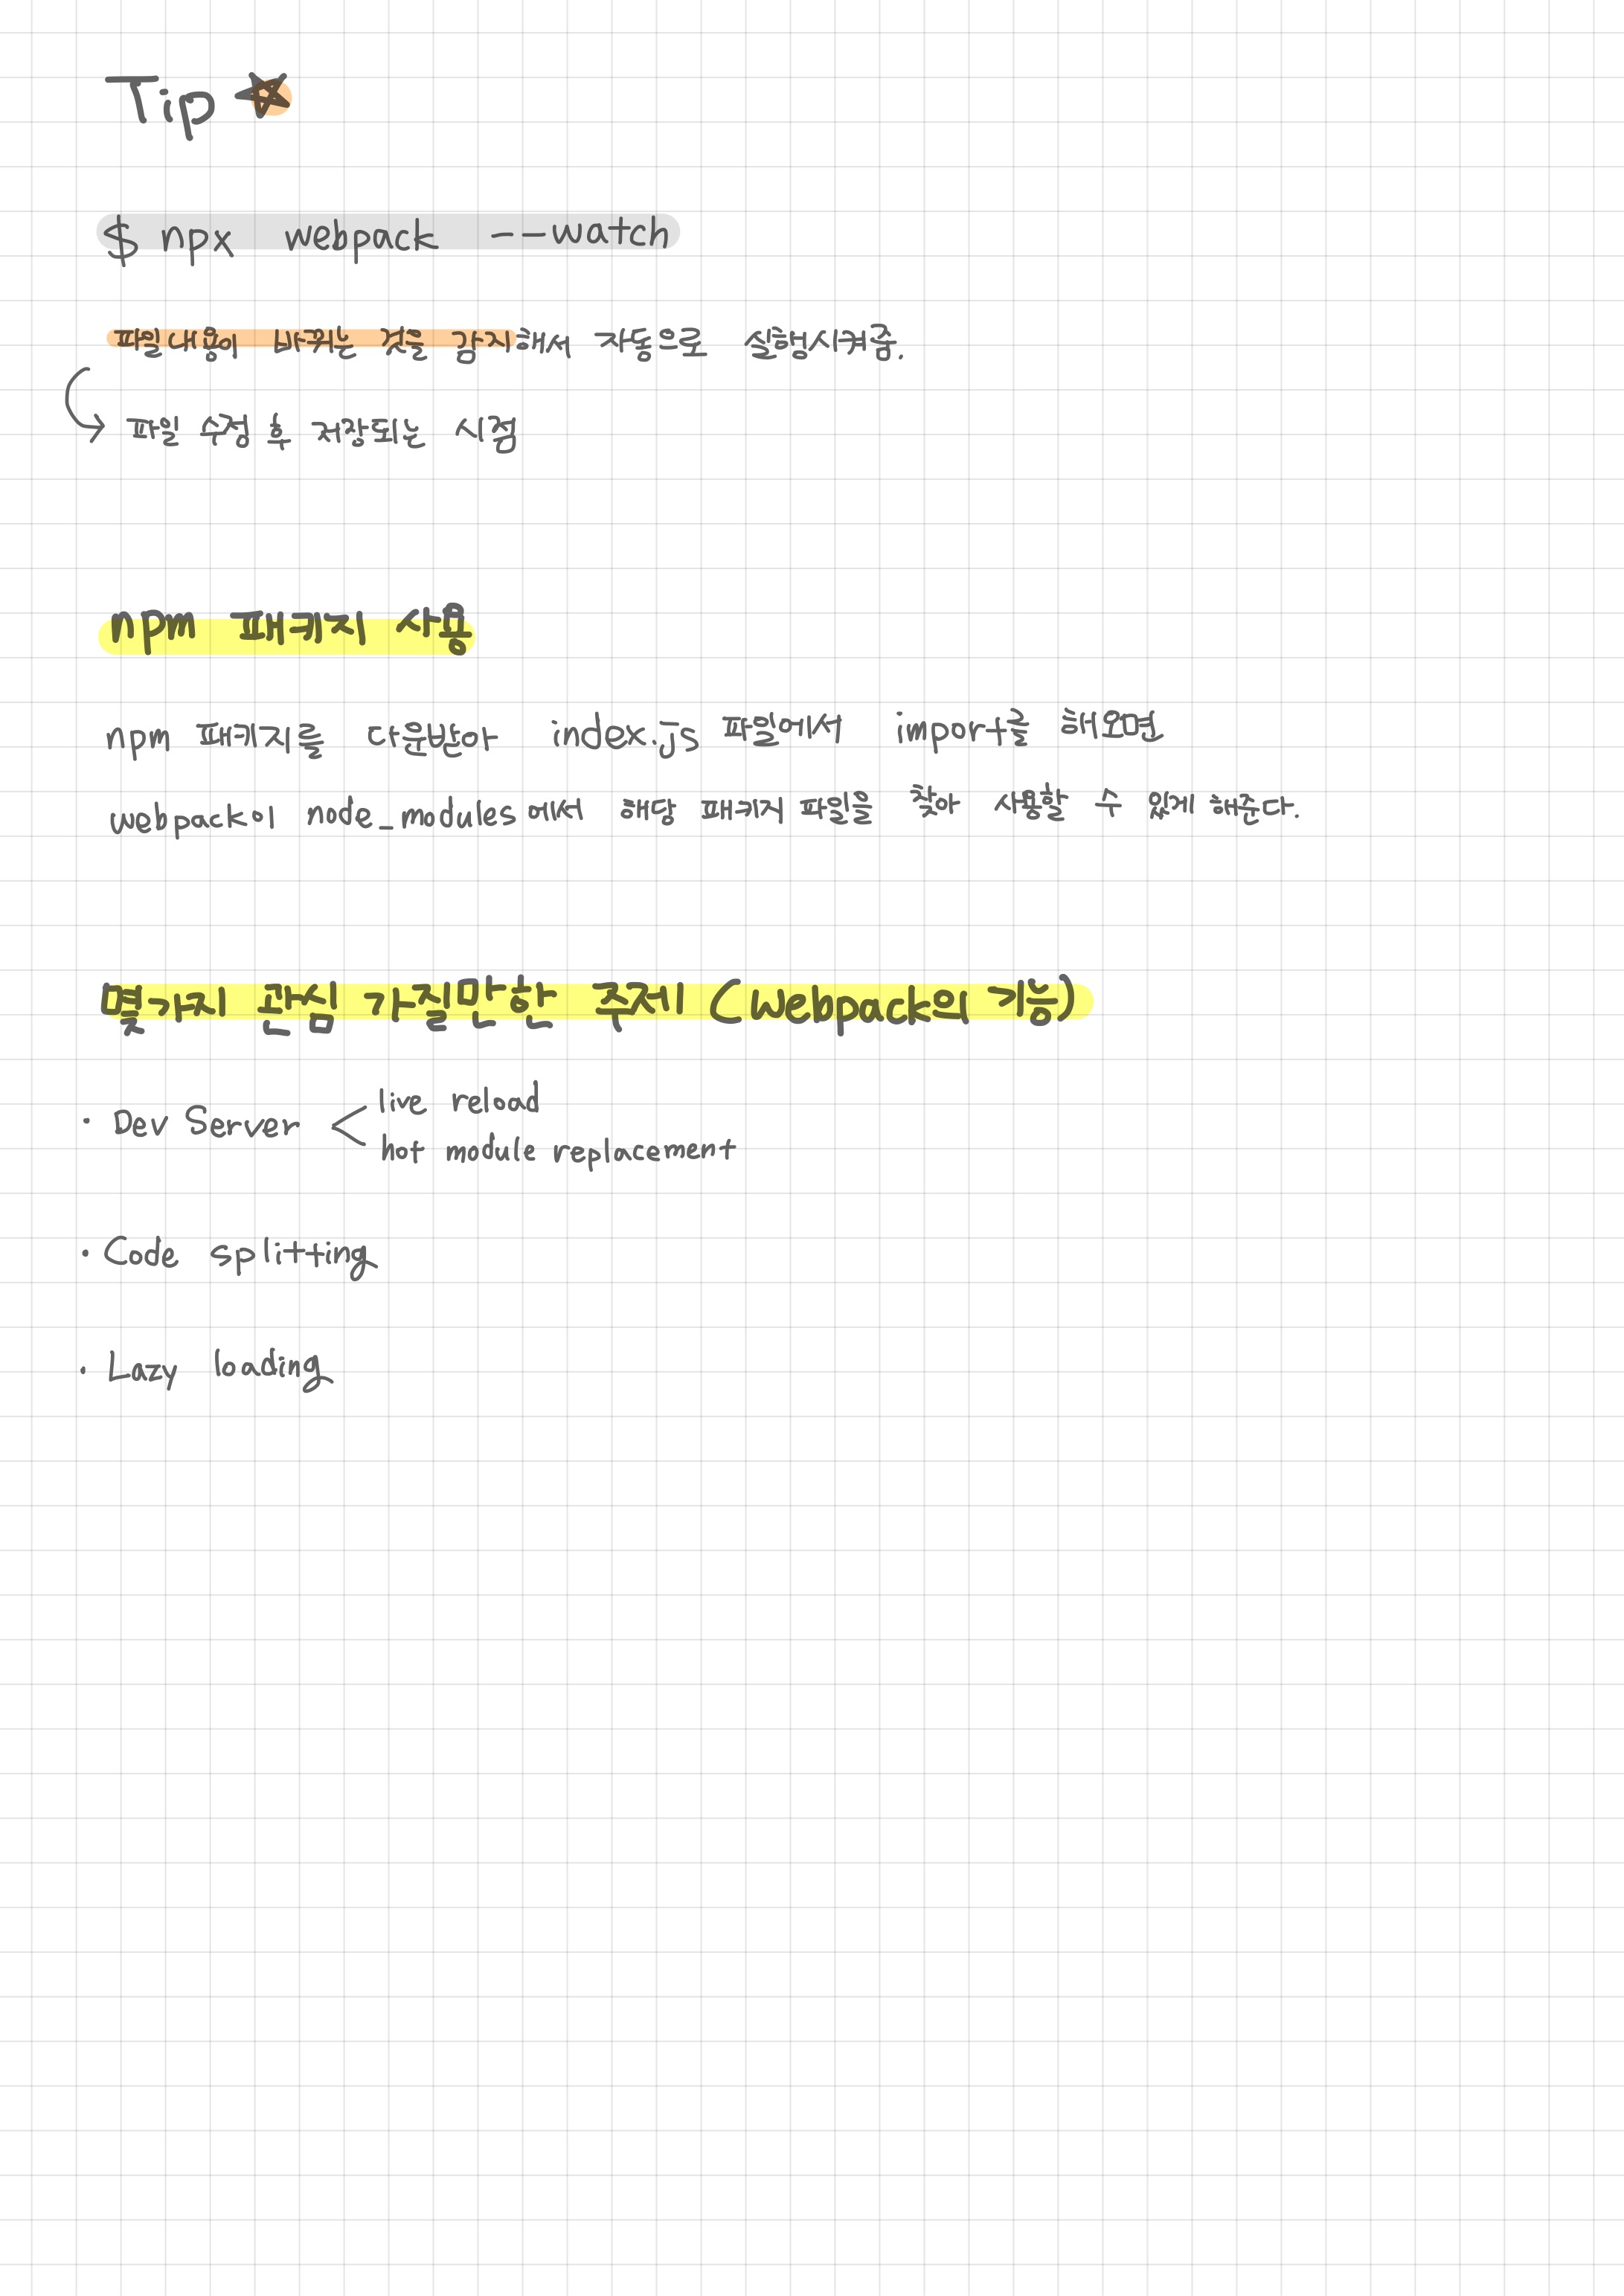 Tip ☆
$ npx webpack --watch
파일내용이 바뀌는 것을 감지해서 자동으로 실행시켜줌.
→ 파일 수정 후 저장되는 시점
npm 패키지 사용
npm 패키지를 다운받아 index.js 파일에서 import를 해오면
webpack이 node_modules에서 해당 패키지 파일을 찾아 사용할 수 있게 해준다.
몇가지 관심 가질만한 주제 (webpack의 기능)
· Dev Server < live reload
hot module replacement
· Code splitting
· Lazy loading